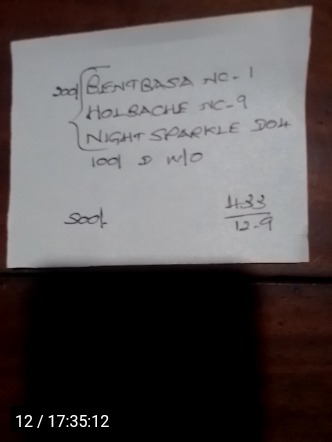 200/ BENTBASA NC-1
HOLBACHE NC-9
NIGHT SPARKLE D04
100/ D W/O
500/-
1433
12-9
12 / 17:35:12